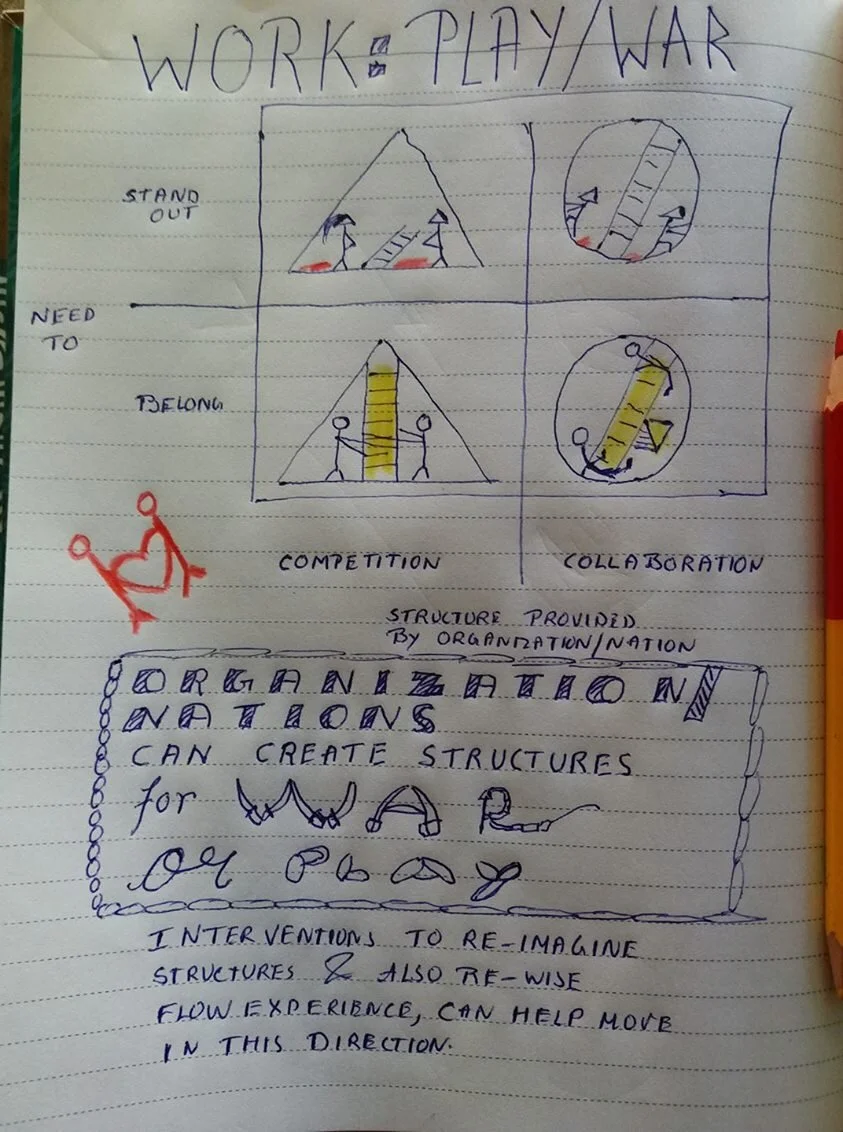 WORK: PLAY/WAR
STAND
OUT
NEED
TO
BELONG
COMPETITION
COLLABORATION
STRUCTURE PROVIDED
BY ORGANIZATION/NATION
ORGANIZATION/
NATIONS
CAN CREATE STRUCTURES
for WAR
or Play
INTERVENTIONS TO RE-IMAGINE
STRUCTURES & ALSO RE-WISE
FLOW EXPERIENCE, CAN HELP MOVE
IN THIS DIRECTION.